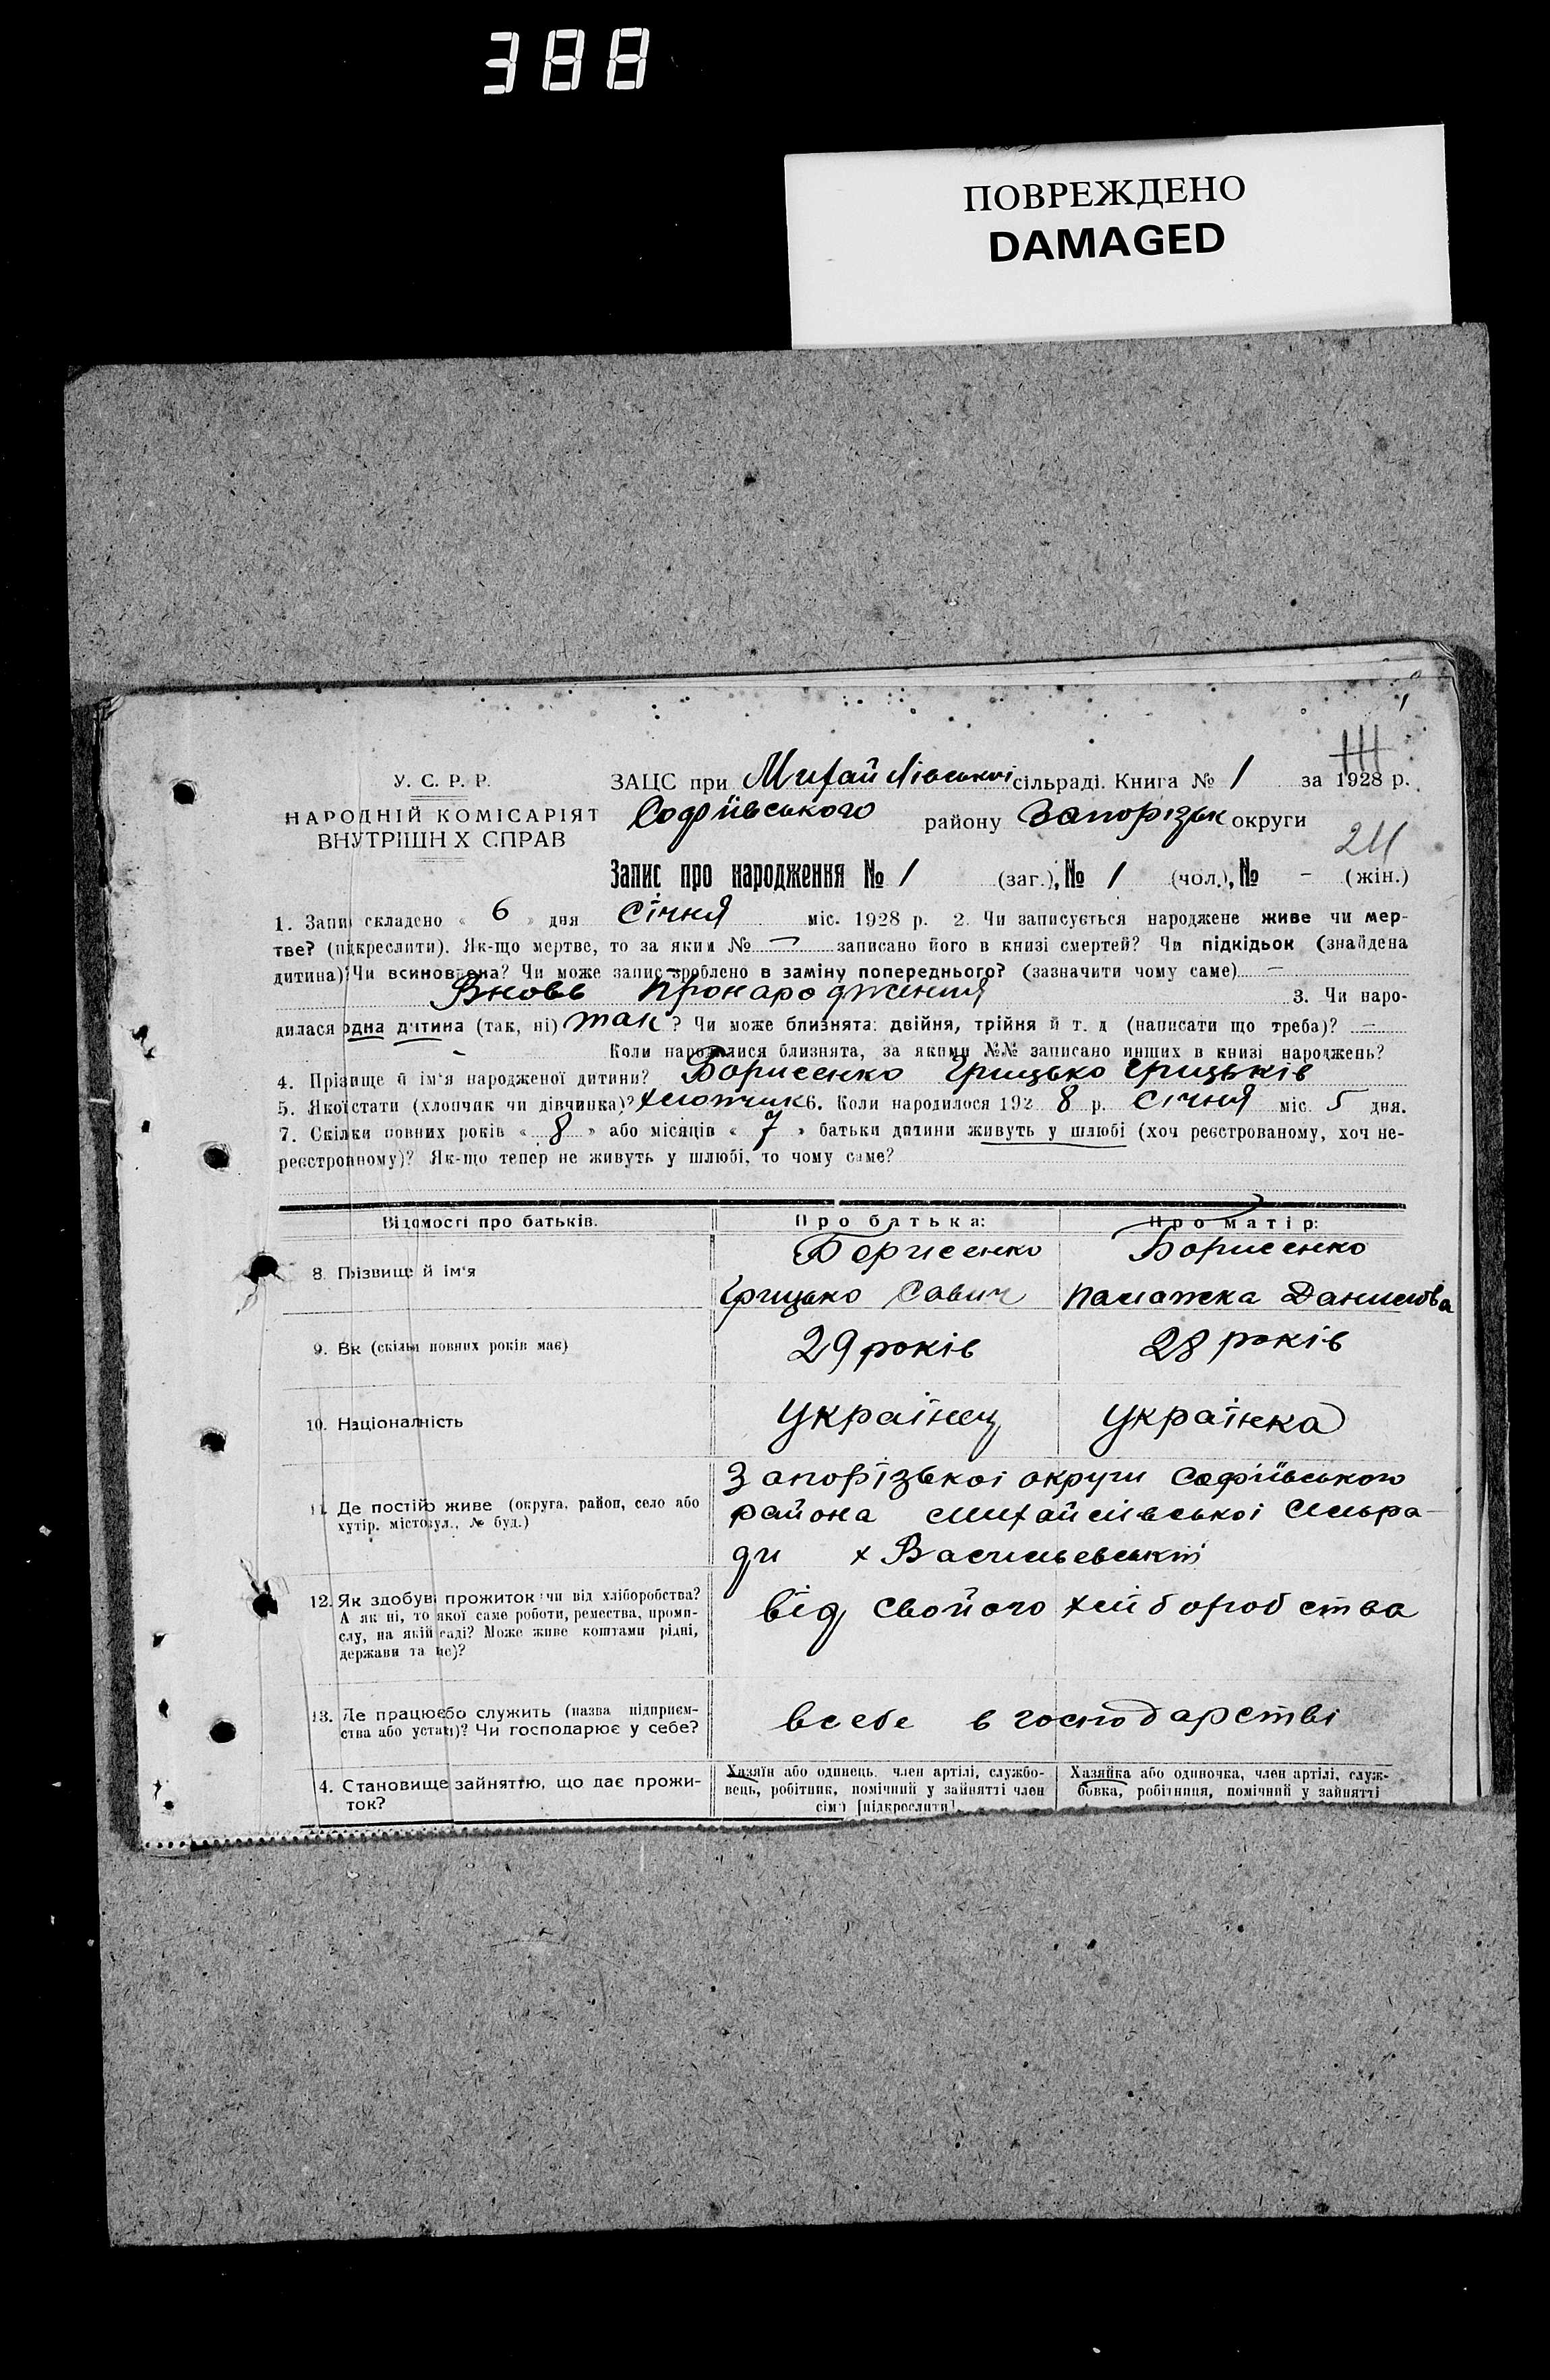 388
ПОВРЕЖДЕНО
DAMAGED
У. С. Р. Р.
НАРОДНІЙ КОМІСАРІЯТ
ВНУТРІШН Х СПРАВ
ЗАЦС при Михайлівській сільраді. Книга № 1 за 1928 р.
Софіївського району Запорізьк округи
24
Запис про народження № 1 (заг.), № 1 (чол.), № - (жін.)
1. Запис складено « 6 » дня Січня міс. 1928 р. 2. Чи записується народжене живе чи мер-
тве? (підкреслити). Як-що мертве, то за яким № — записано його в книзі смертей? Чи підкідьок (знайдена
дитина)? Чи всиновлена? Чи може запис зроблено в заміну попереднього? (зазначити чому саме) —
Вновь пронародження 3. Чи наро-
дилася одна дитина (так, ні) так ? Чи може близнята: двійня, трійня й т. д (написати що треба)? —
Коли народилися близнята, за якими №№ записано инших в книзі народжень?
4. Прізвище й ім'я народженої дитини? Борисенко Грицько Грицьків
5. Якої стати (хлопчик чи дівчинка)? хлопчик 6. Коли народилося 192 8 р. Січня міс. 5 дня.
7. Скілки повних років « 8 » або місяців « 7 » батьки дитини живуть у шлюбі (хоч реєстрованому, хоч не-
реєстрованому)? Як-що тепер не живуть у шлюбі, то чому саме?
Відомості про батьків. Про батька: Про матір:
8. Прізвище й ім'я
Борисенко Борисенко
Грицько Савич Палажка Данилова
9. Вік (скільки повних років має) 29 років 28 років
10. Національність Українец Українка
11. Де постійно живе (округа, район, село або
хутір. місто, вул., № буд.)
Запорізькоі округи Софіівського
района Михайлівськоі Сільра-
ди х Васильевський
12. Як здобува прожиток: чи від хліборобства?
А як ні, то якої саме роботи, ремества, проми-
слу, на якій саді? Може живе коштами рідні,
держави та ще)?
від свойого хліборобства
13. Де працює або служить (назва підприєм-
ства або устан.)? Чи господарює у себе?
всебе в господарстві
14. Становище зайняттю, що дає прожи-
ток?
Хазяїн або одинець, член артілі, службо-
вець, робітник, помічний у зайнятті член
сім'ї [підкреслити].
Хазяйка або одиночка, член артілі, служ-
бовка, робітниця, помічний у зайнятті